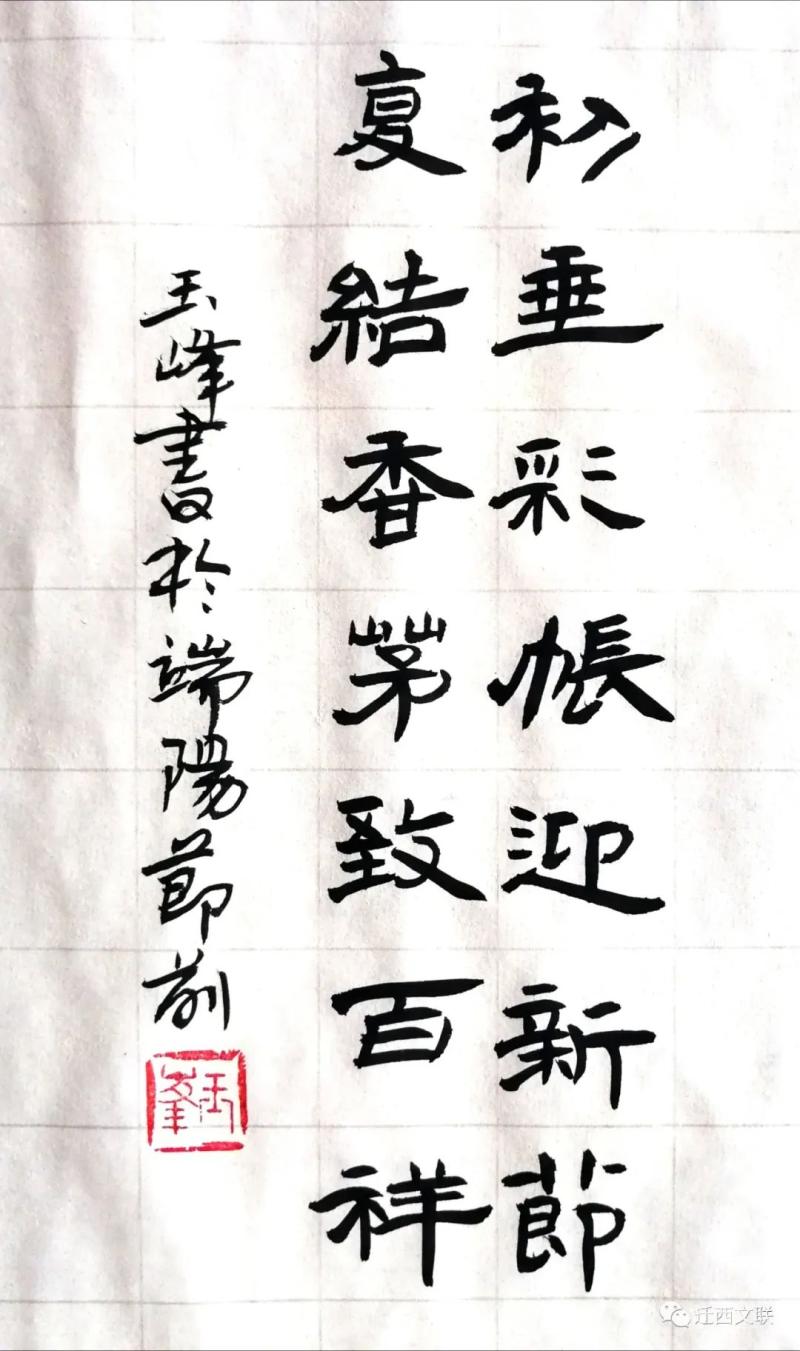 初垂彩帳迎新節
夏結香茅致百祥
玉峰書於端陽節前
玉峯
迁西文联